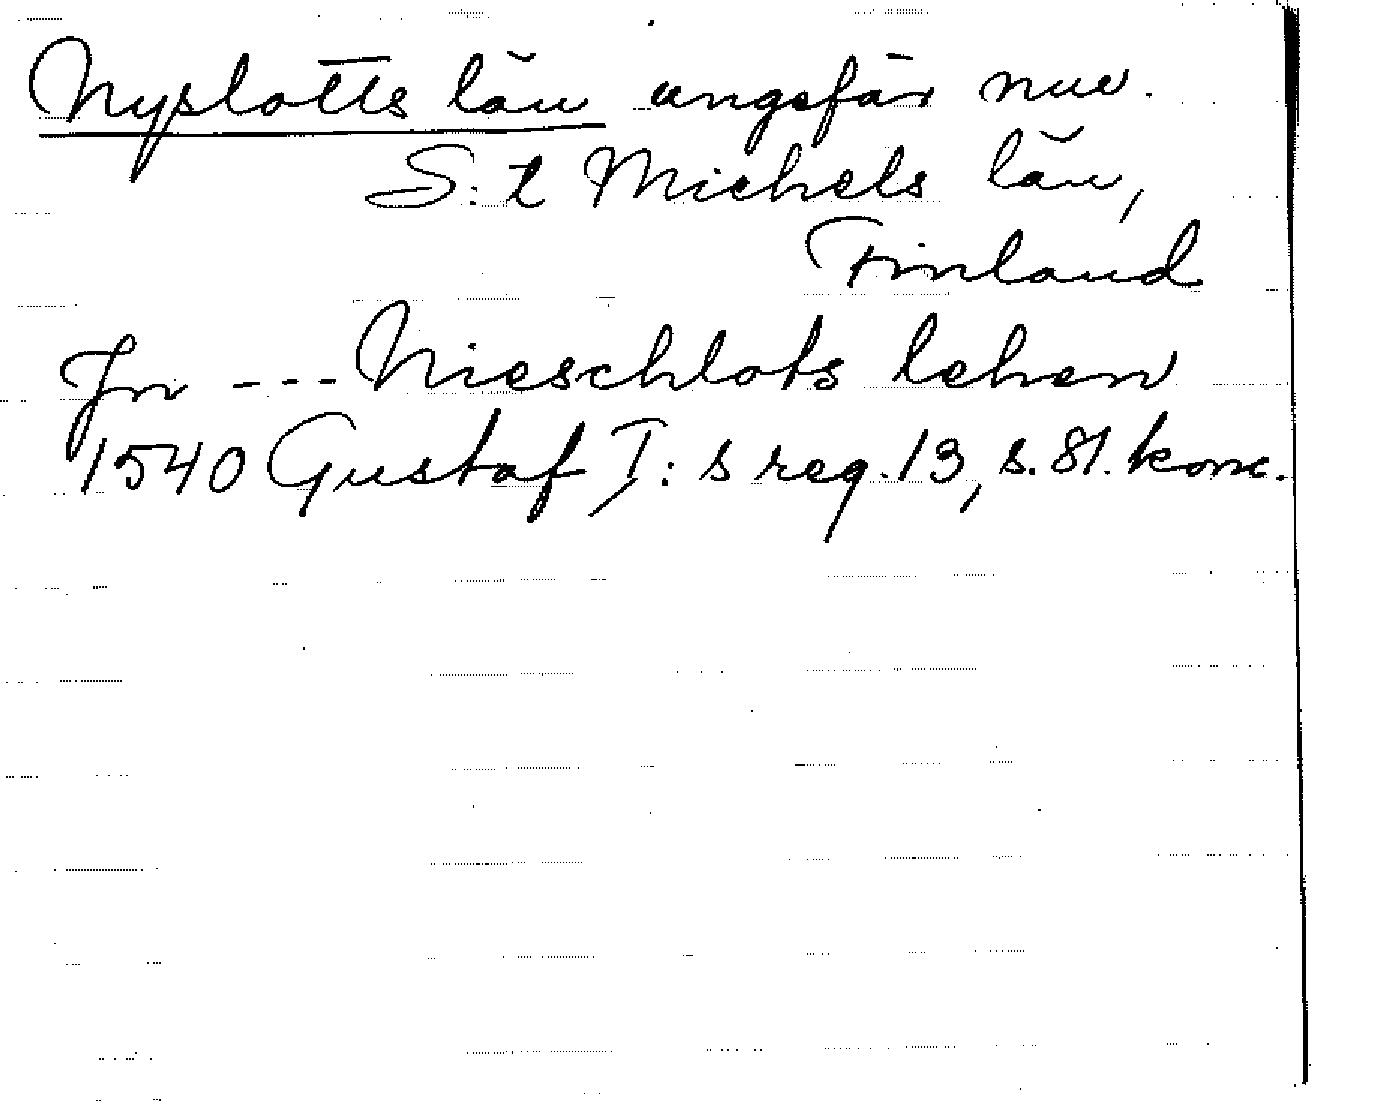 Nyslotts län ungefär nuv.
S:t Michels län,
Finland
Jn --- Nieschlots lehen
1540 Gustaf I:s reg. 13, s. 81. konc.